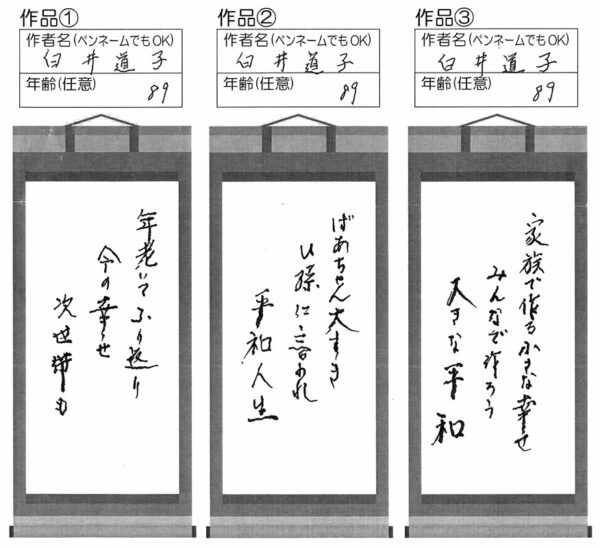 作品①
作者名(ペンネームでもOK)
臼井道子
年齢(任意)
89
年老いてふり返り
今の幸せ
次世帯も
作品②
作者名(ペンネームでもOK)
臼井道子
年齢(任意)
89
ばあちゃん大すき
ひ孫に言われ
平和人生
作品③
作者名(ペンネームでもOK)
臼井道子
年齢(任意)
89
家族で作る小さな幸せ
みんなで作ろう
大きな平和